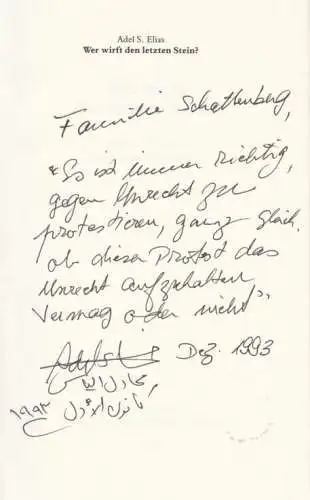 Adel S. Elias
Wer wirft den letzten Stein?
Familie Schattenberg,
"Es ist immer richtig,
gegen Unrecht zu
protestieren, ganz gleich,
ob dieser Protest das
Unrecht aufzuhalten
vermag oder nicht",
Adel S. Elias Dez. 1993
عادل الياس
كانون الأول
١٩٩٣